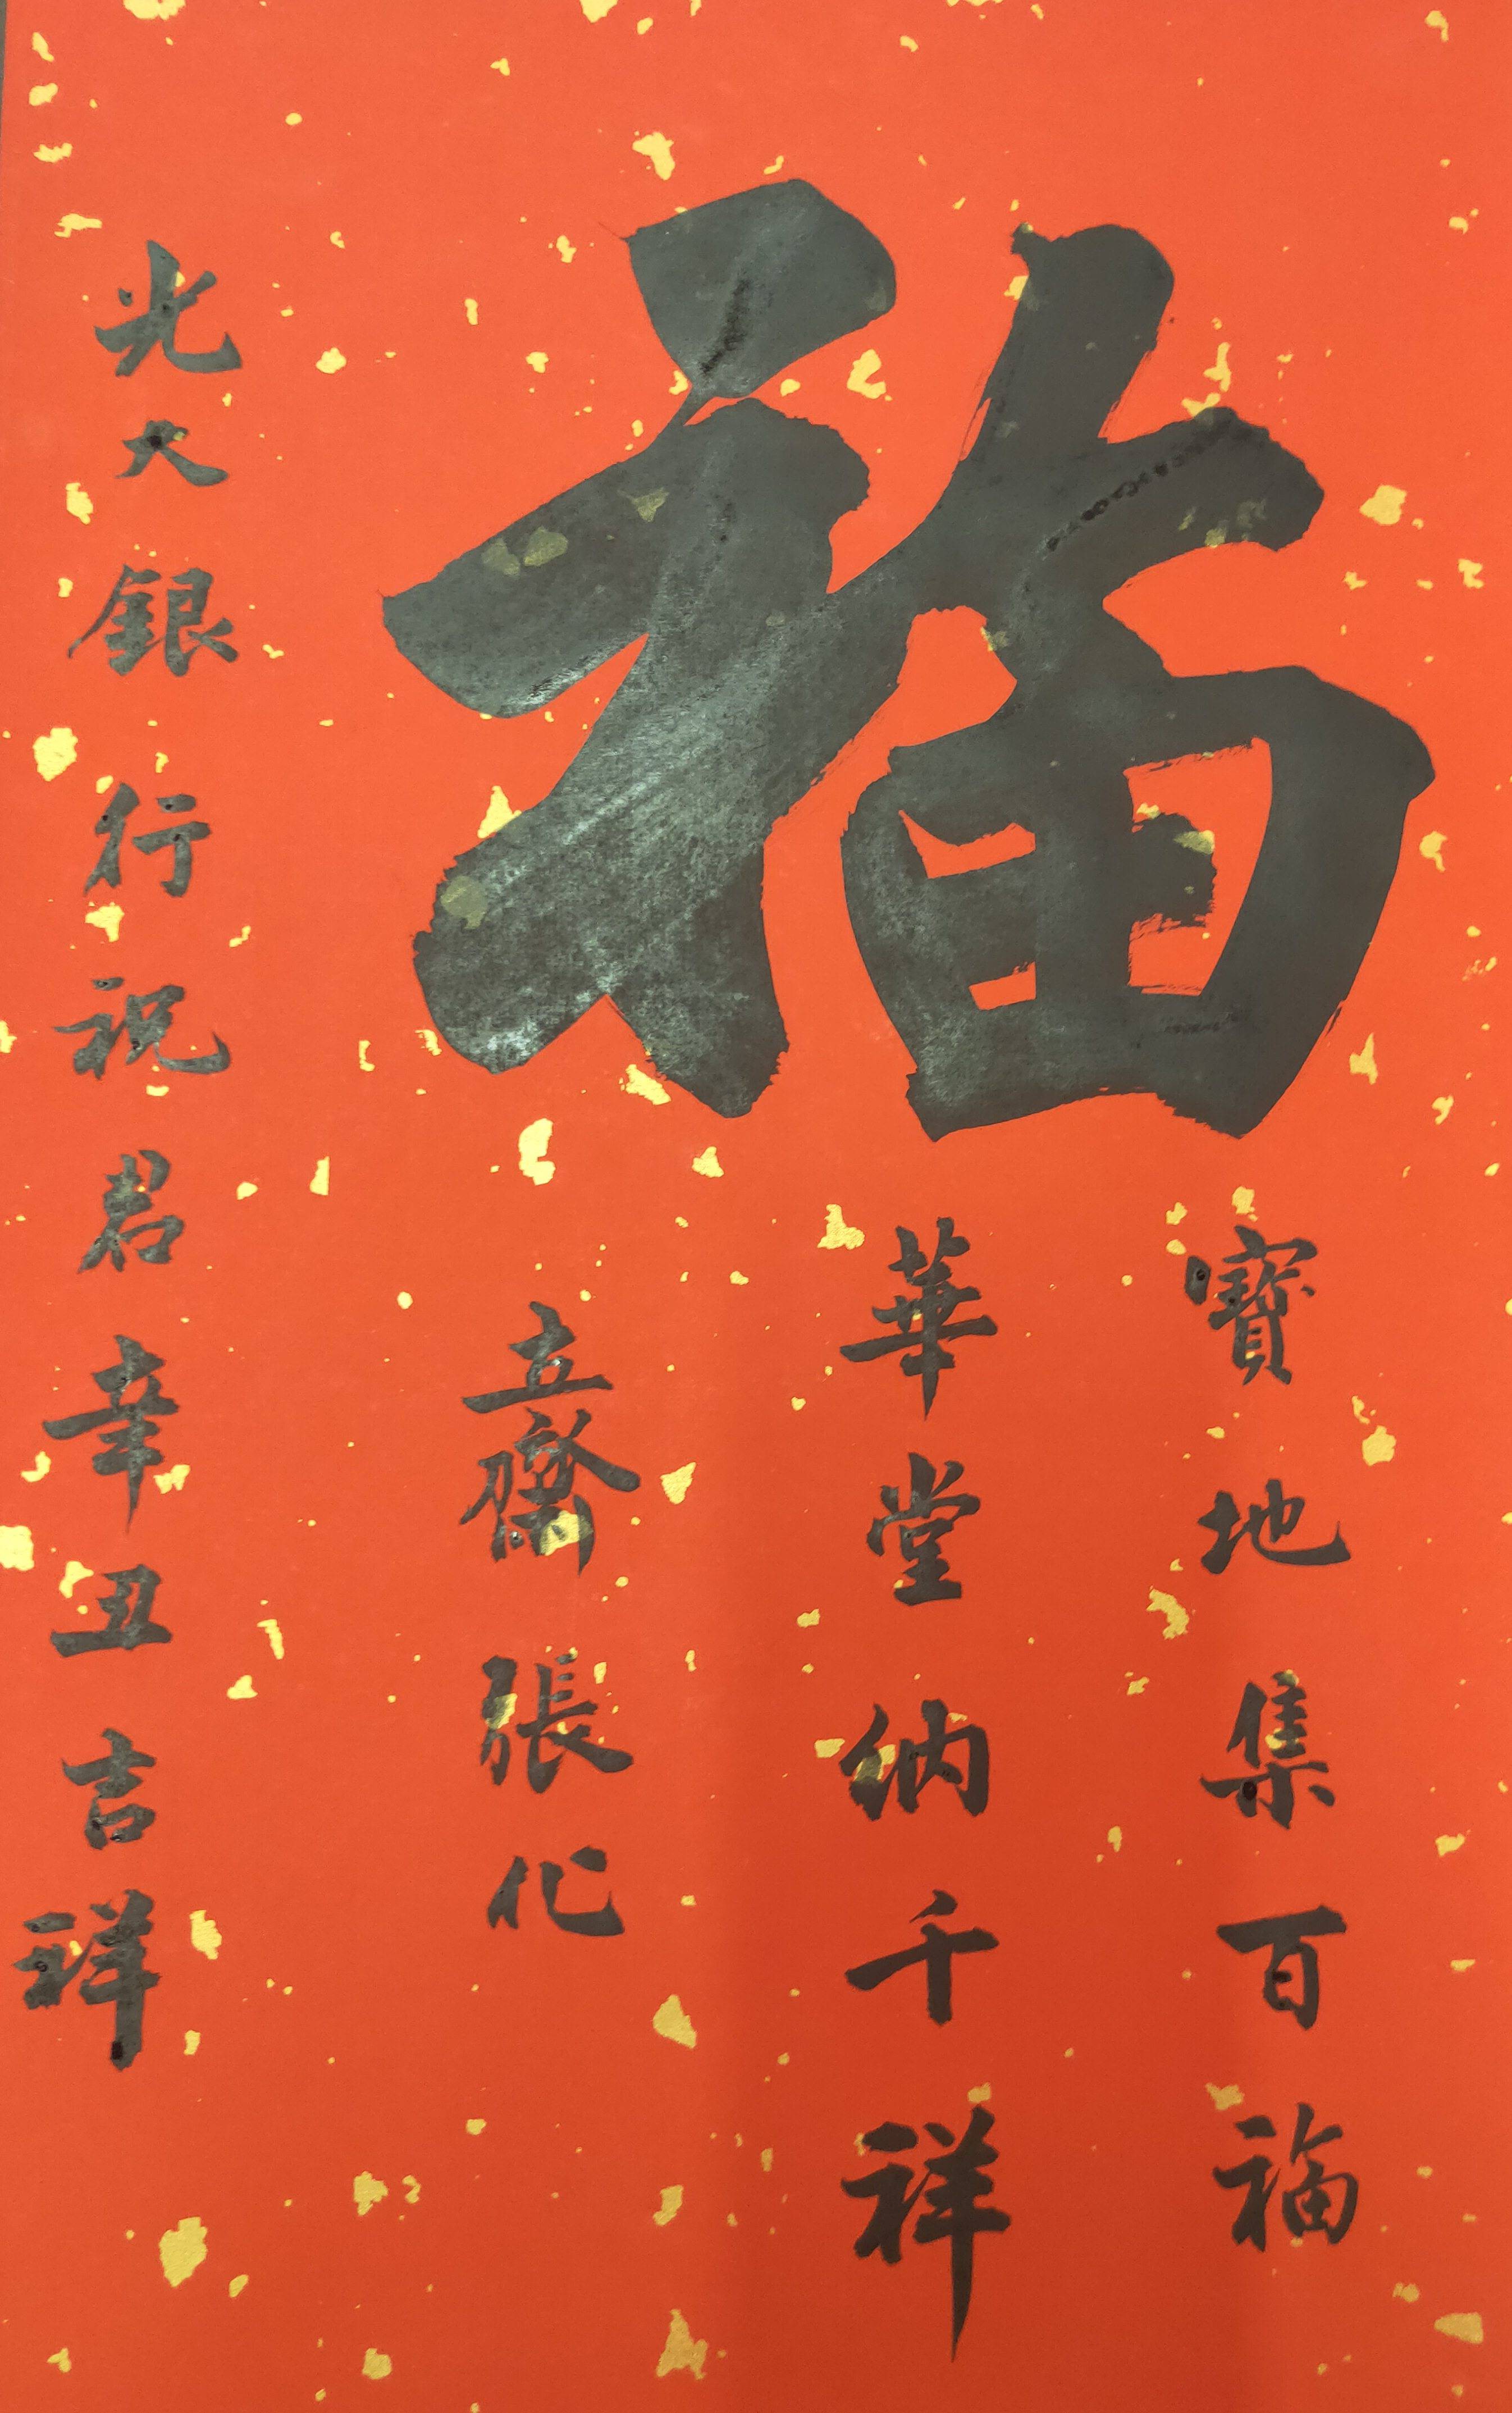 福
寶地集百福
華堂納千祥
立齋 張化
光大銀行祝君辛丑吉祥